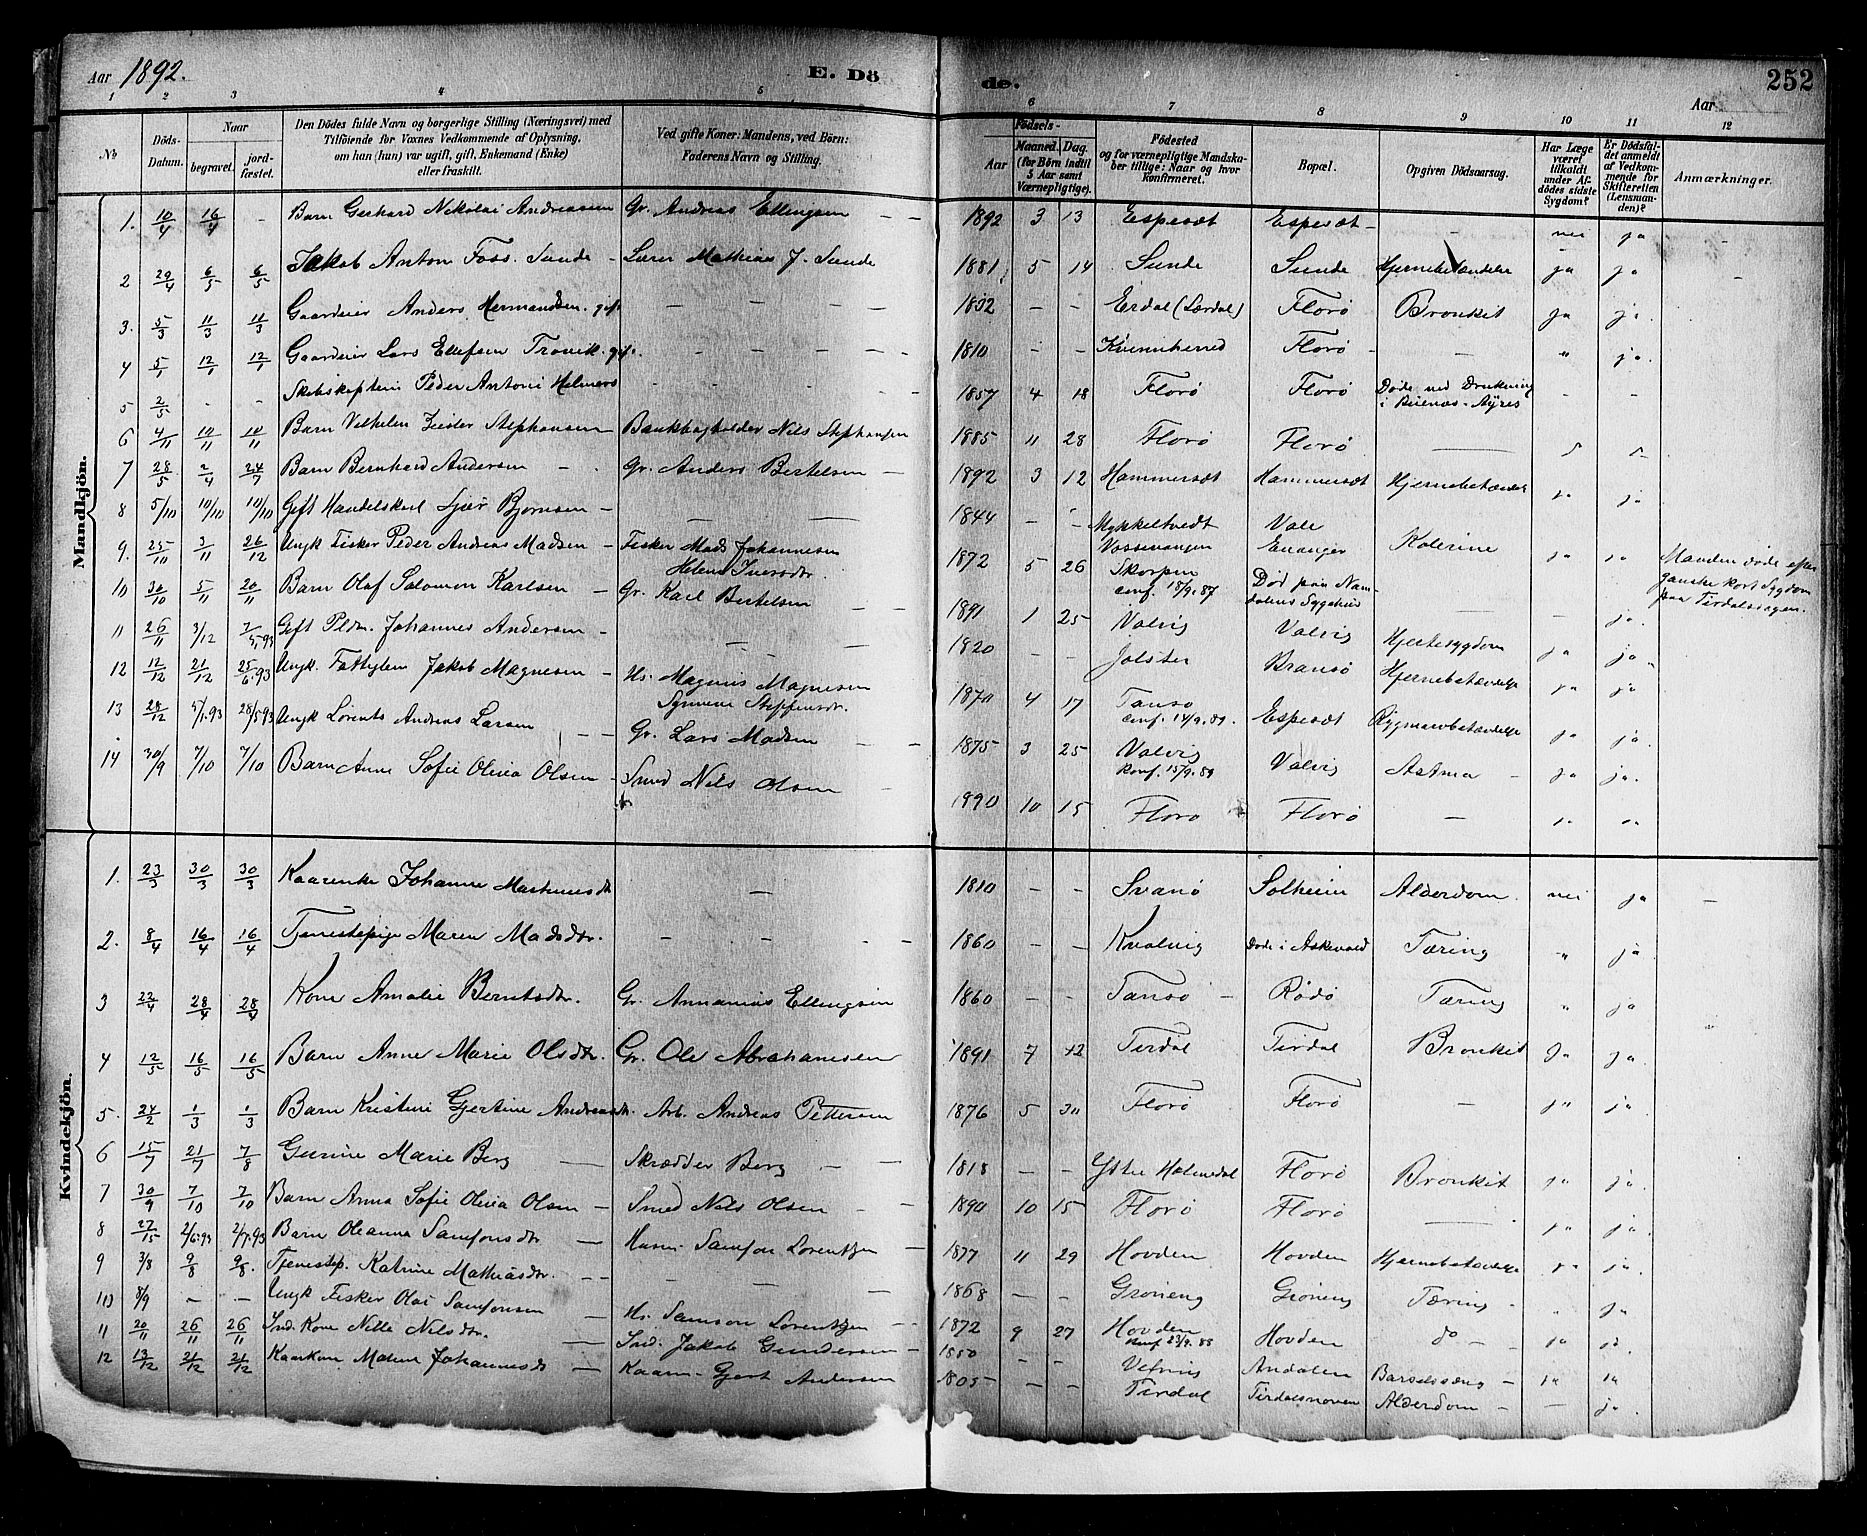 Aar 1892. E. Dö de. Aar 252
1 2 3 4 5 6 7 8 9 10 11 12
No Döds-Datum. Naar begravet. jordfæstet. Den Dödes fulde Navn og borgerlige Stilling (Næringsvei) med Tilföiende for Voxnes Vedkommende af Oplysning, om han (hun) var ugift, gift, Enkemand (Enke) eller fraskilt. Ved gifte Koner: Mandens, ved Börn: Faderens Navn og Stilling. Födsels- Aar Maaned. Dag. (for Börn indtil 5 Aar samt Værnepligtige). Födested og for værnepligtige Mandskaber tillige: Naar og hvor konfirmeret. Bopæl. Opgiven Dödsaarsag. Har Læge været tilkaldt under Afdödes sidste Sygdom? Er Dödsfaldet anmeldt af Vedkommende for Skifteretten (Lensmanden)? Anmærkninger.
Mandkjön.
1. 10/4 16/4 - Barn Gerhard Nikolai Andreassen Gr. Andreas Ellingsen - - 1892 3 13 Espesæt Espesæt - - nei ja -
2 29/4 6/5 6/5 Jakob Anton Foss. Sunde - Lærer Mathias J. Sunde 1881 5 14 Sunde Sunde Hjernebetændelse ja ja -
3. 5/3 11/3 11/3 Gaardeier Anders Hermandsen. gift - - - 1832 - - Erdal (Lærdal) Florø Bronkit ja ja.
4 5/1 12/1 12/1 Gaardeier Lars Ellefsen Trovik. gift. - - - - 1810 - - Kvinnherred Florø - - " ja.
5 2/5 - - Skibskaptein Peder Antoni Helmers - - - - 1857 4 18 Florø Florø Døde ved Drukning i Buenos-Ayres - -
6 4/11 10/11 10/11 Barn Vilhelm Stephansen Bankbogholder Nils Stephansen 1885 11 28 Florø Florø -
7 28/5 2/4 24/7 Barn Bernhard Andersen - - Gr. Anders Bertelsen - 1892 3 12 Hammersæt Hammersæt Hjernebetændelse ja ja
8 5/10 10/10 10/10 Gift Handelskarl Sjur Bjørnsen - - - 1844 - - Mykkeltvedt Vossevangen Vale Evanger Kolerine ja ja Manden døde efter ganske kort Sygdom paa Tirdalsvagen.
9. 25/10 3/11 26/12 Ungk Fisker Peder Andreas Madsen - Fisker Mads Johannesen Helene Iversdtr. 1872 5 26 Skorpen conf. 18/9.87 Død paa Namdalens Sygehus -
10 30/10 5/11 20/11 Barn Olaf Salomon Karlsen - Gr. Karl Bertelsen - - 1891 1 25 Valvig Valvig - ja.
11 26/11 3/12 7/5,93 Gift Pldm. Johannes Andersen - - 1820 - - Jølster Bransø Hjertesygdom ja ja
12 12/12 21/12 25/6.93 Ungk. Fattiglem Jakob Magnesen - Hs. Magnus Magnesen Synneve Steffensdtr. 1870 4 17 Tansø conf. 14/9.89. Espesæt Rygmarvbetændelse ja ja
13 28/12 5/1.93 28/5 93 Ungk Lorents Andreas Larsen - - Gr. Lars Madsen - - 1875 3 25 Valvig konf. 15/9.89 Valvig Astma - ja ja.
14 30/9 7/10 7/10 Barn Anne Sofie Olivia Olsen - Smed Nils Olsen - 1890 10 15 Florø Florø -
Kvindekjön.
1. 23/3 30/3 30/3 Kaarenke Johanne Martinusdtr - 1810 - - Svanø Solheim Alderdom. nei ja -
2. 8/4 16/4 16/4 Tjenestepige Maren Madsdtr. - - - - 1860 - - Kvalvig Døde i Askevold Tæring " ja
3 22/4 28/4 28/4 Kone Amalie Berntsdtr. Gr. Annanias Ellingsen 1860 - - Tansø - Rødø Tæring " ja
4 12/5 16/5 16/5 Barn Anne Marie Olsdtr. Gr. Ole Abrahamsen 1891 7 12 Tirdal Tirdal Bronkit ja ja
5. 24/2 1/3 1/3 Barn Kristine Gjertine Andreasdtr. Arb. Andreas Pettersen 1876 5 30 Florø Florø - ja ja.
6 15/7 21/7 7/8 Gurine Marie Berg - Skrædder Berg - - 1818 - - Ytre Holmedal Florø Bronkit ja ja.
7 30/9 7/10 7/10 Barn Anna Sofie Olivia Olsen - Smed Nils Olsen - - 1890 10 15 Florø Florø - ja ja
8 27/15 2/6.93 2/7.93 Barn Oleanna Samsonsdtr - Husm. Samson Lorentzen - 1877 11 29 Hovden Hovden Hjernebetændelse ja ja.
9 3/8 9/8 9/8. Tjenestep. Katrine Mathiasdtr. - - - - 1868 - - Grøneng Grøneng Tæring - ja
10 8/9 - - Ungk Fisker Olai Samsonsen - Hs. Samson Lorentzen - 1872 9 27 Hovden konf 23/9.88 Hovden do - ja ja
11 20/11 26/11 26/11 Ind. Kone Nille Nilsdtr. - Ind. Jakob Gundersen - 1850 - - Vefring Andalen Barselsseng - ja ja
12 13/12 21/12 21/12 Kaarkone Malene Johannesdtr - Kaarm. Gjert Andersen 1805 - - Tirdal Tirdalsnoven Alderdom - - ja.